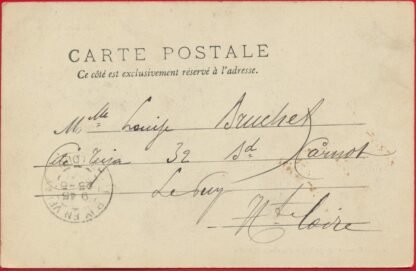 CARTE POSTALE
Ce côté est exclusivement réservé à l'adresse.
Mlle Louise Bruchet
32 Bd Carnot
Le Puy
Hte Loire